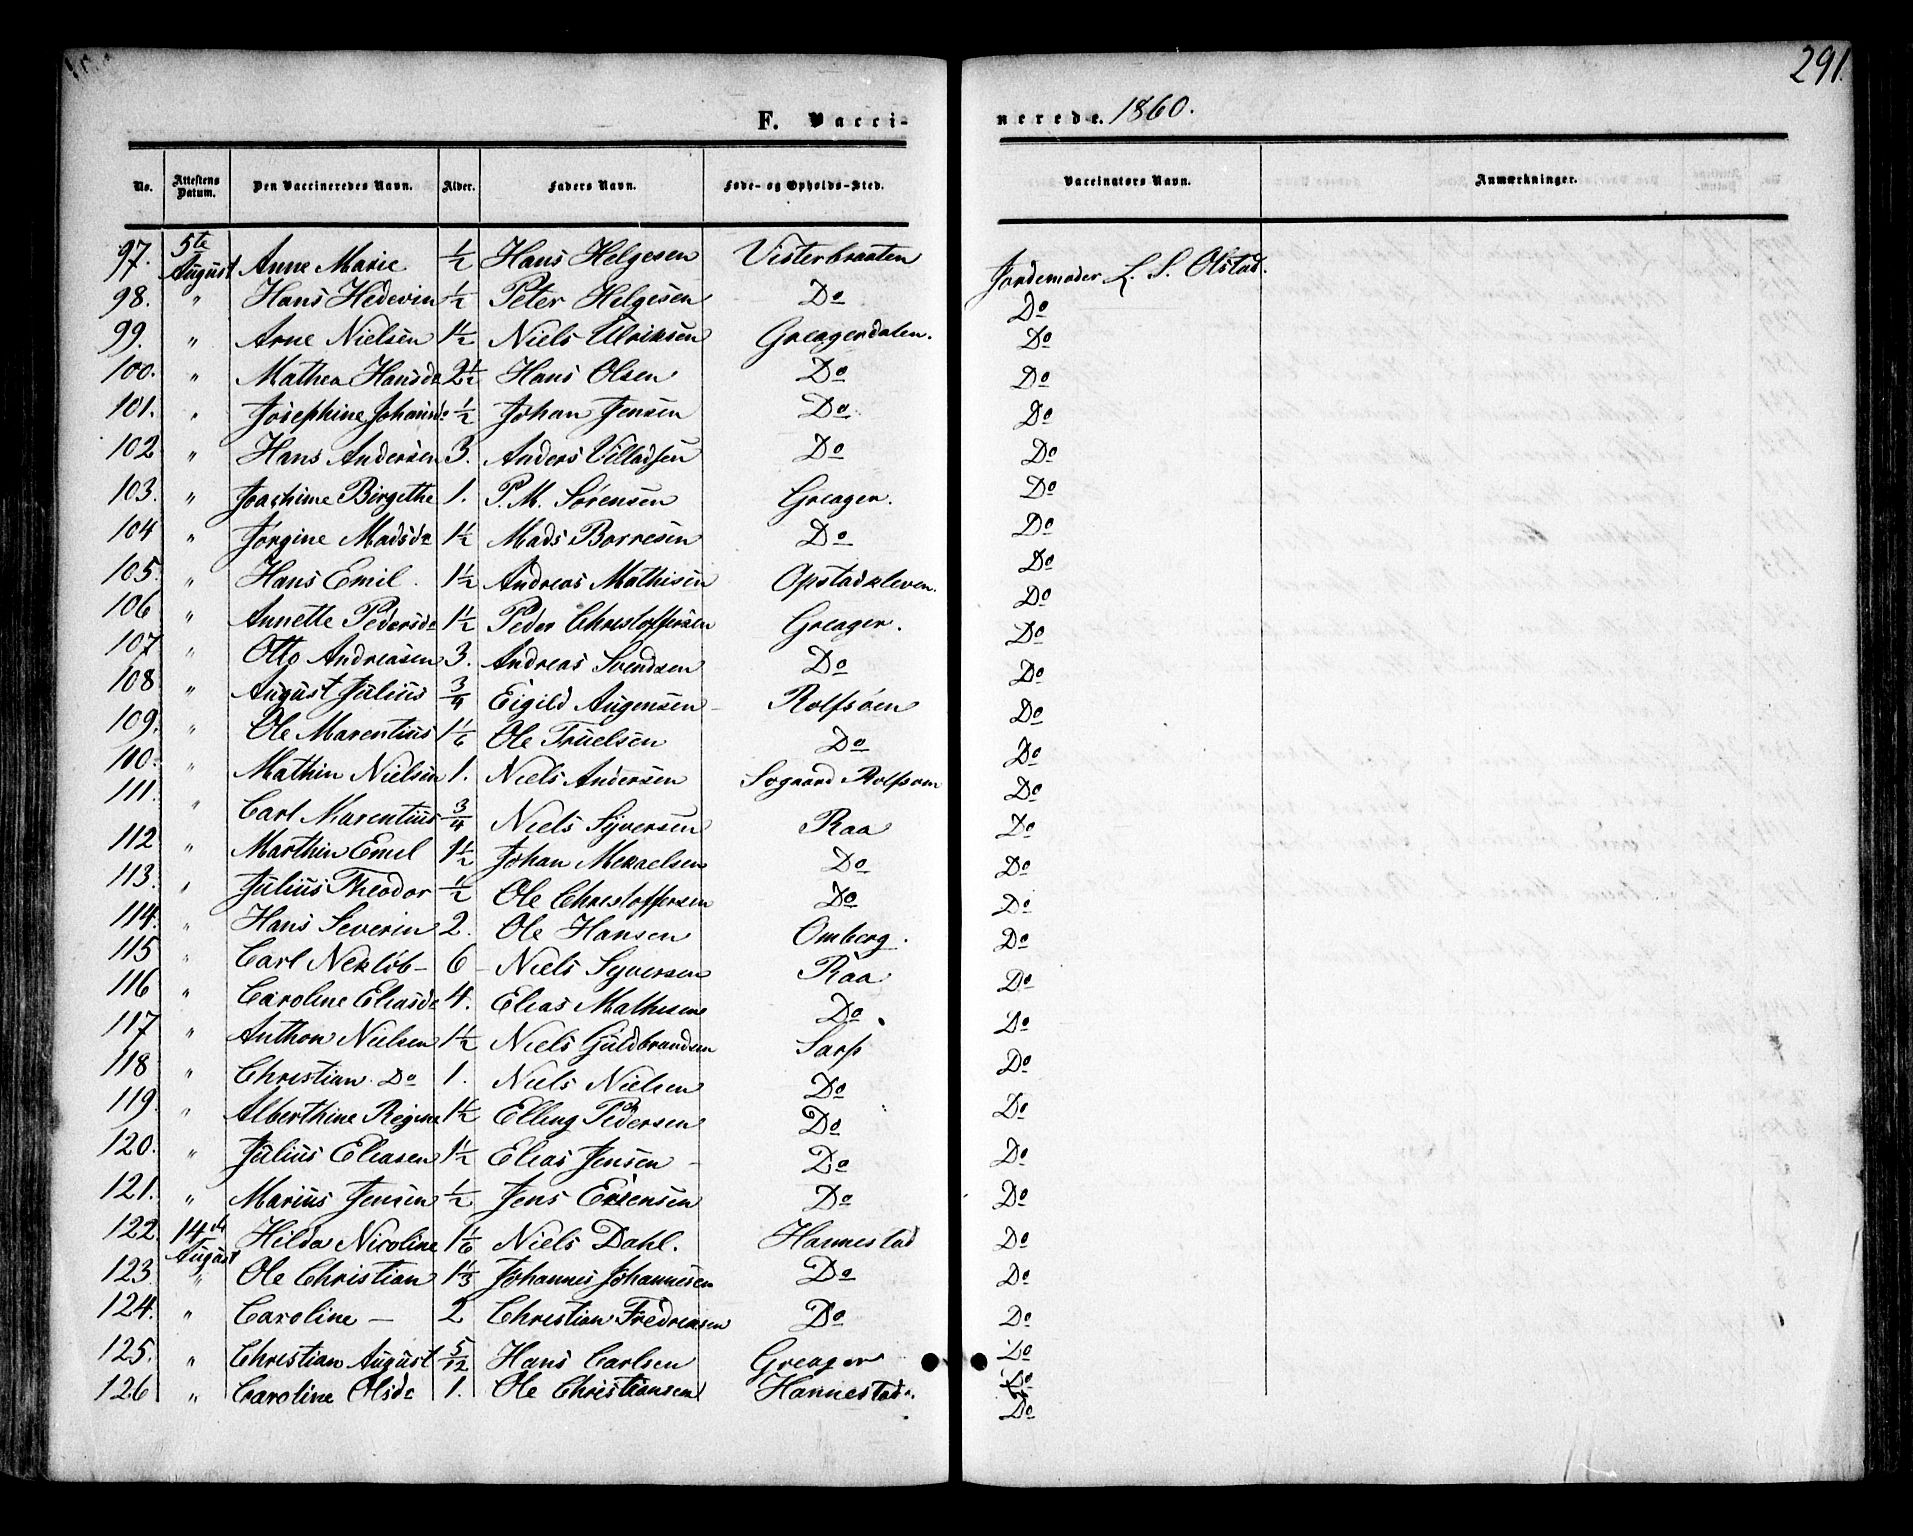 291.
F. Vaccinerede. 1860.
No. | Attestens Datum. | Den Vaccineredes Navn. | Alder. | Faders Navn. | Føde- og Opholds-Sted. | Vaccinators Navn. | Anmærkninger.
97. | 5te August | Anne Marie | ½ | Hans Helgesen | Visterbraaten | Jordemoder L. S. Olstad.
98. | " | Hans Hedevin | ½ | Peter Helgesen | Do | Do
99. | " | Arne Nielsen | 1½ | Niels Ulriksen | Greagerdalen. | Do
100. | " | Mathea Hansdr | 2½ | Hans Olsen | Do | Do
101. | " | Josephine Johansdr | ½ | Johan Jensen | Do | Do
102 | " | Hans Andersen | 3. | Anders Villadsen | Do | Do
103. | " | Joachime Birgethe | 1. | P. M. Sørensen | Greager. | Do
104 | " | Jørgine Madsdr | 1½ | Mads Borresen | Do | Do
105. | " | Hans Emil. | 1½ | Andreas Mathisen | Opstadkleven. | Do
106 | " | Annette Pedersdr | 1½ | Peder Christoffersen | Greager. | Do
107 | " | Otto Andreasen | 3. | Andreas Svendsen | Do | Do
108 | " | August Julius | ¾ | Eigild Augensen | Rolfsøen | Do
109. | " | Ole Marentius | 1⅙ | Ole Truelsen | Do | Do
110. | " | Mathin Nielsen | 1. | Niels Andersen | Sogaard Rolfsøen | Do
111. | " | Carl Marentius | ¾ | Niels Syversen | Raa | Do
112 | " | Marthin Emil | 1½ | Johan Mekaelsen | Do | Do
113. | " | Julius Theodor | ½ | Ole Christoffersen | Do | Do
114. | " | Hans Severin | 2. | Ole Hansen | Omberg. | Do
115 | " | Carl Neklöb | 6 | Niels Syversen | Raa | Do
116 | " | Caroline Eliasdr | 4. | Elias Mathisen | Do. | Do
117 | " | Anthon Nielsen | 1½ | Niels Guldbrandsen | Sarp | Do
118 | " | Christian Do | 1. | Niels Nielsen | Do | Do
119. | " | Alberthine Regine | 1½ | Elling Pedersen | Do | Do
120. | " | Julius Eliasen | 1½ | Elias Jensen | Do | Do
121. | " | Marius Jensen | ½ | Jens Eriksen | Do | Do
122. | 14de August | Hilda Nicoline | 1⅙ | Niels Dahl. | Hannestad | Do
123. | " | Ole Christian | 1⅓ | Johannes Johannesen | Do | Do
124. | " | Caroline — | 2 | Christian Fredriksen | Do | Do
125. | " | Christian August | 5/12 | Hans Carlsen | Greager | Do
126 | " | Caroline Olsdr | 1. | Ole Christiansen | Hannestad. | Do
Do